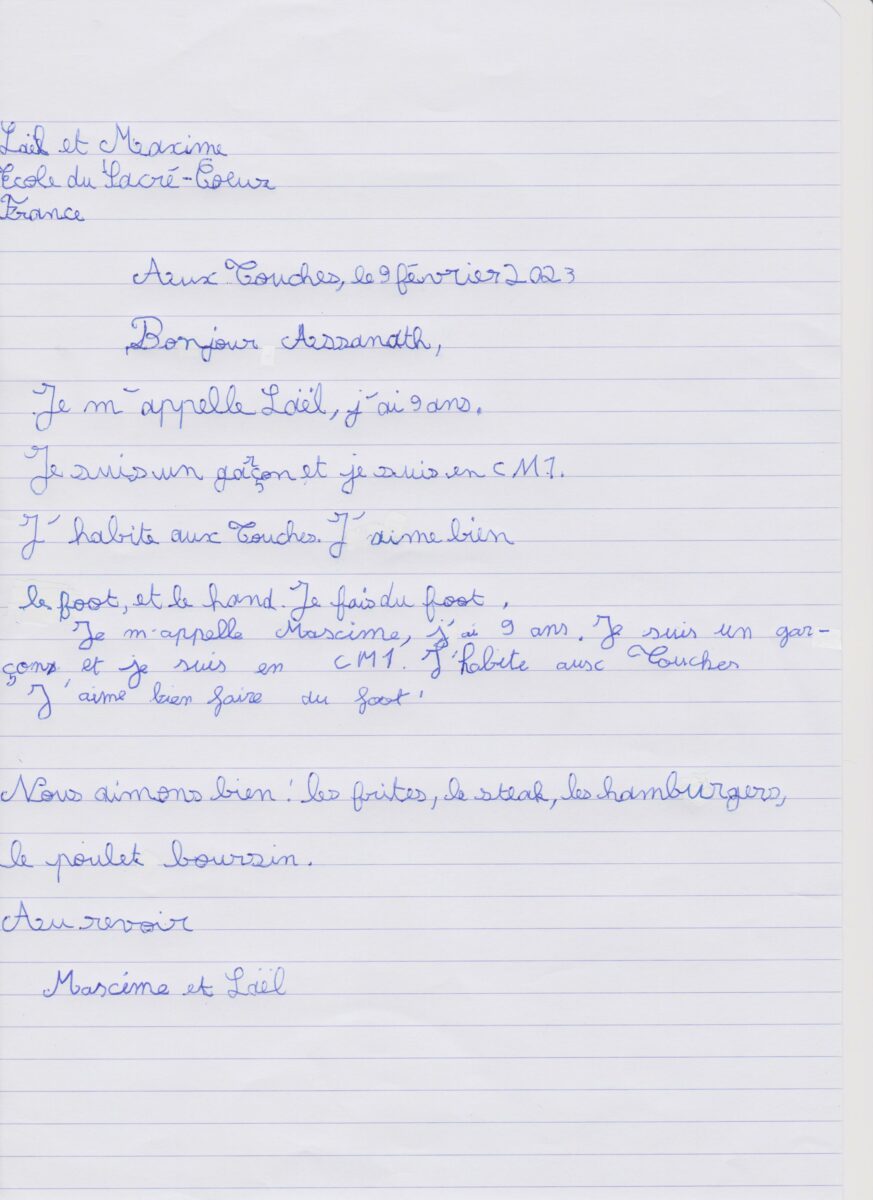 Laël et Maxime
Ecole du Sacré-Coeur
France
Aux Touches, le 9 février 2023
Bonjour Assanath,
Je m'appelle Laël, j'ai 9 ans.
Je suis un garçon et je suis en CM1.
J'habite aux Touches. J'aime bien
le foot, et le hand. Je fais du foot.
Je m'appelle Maxime, j'ai 9 ans. Je suis un gar-
çon et je suis en CM1. J'habite aux Touches
J'aime bien faire du foot.
Nous aimons bien : les frites, le steak, les hamburgers,
le poulet boursin.
Au revoir
Maxime et Laël